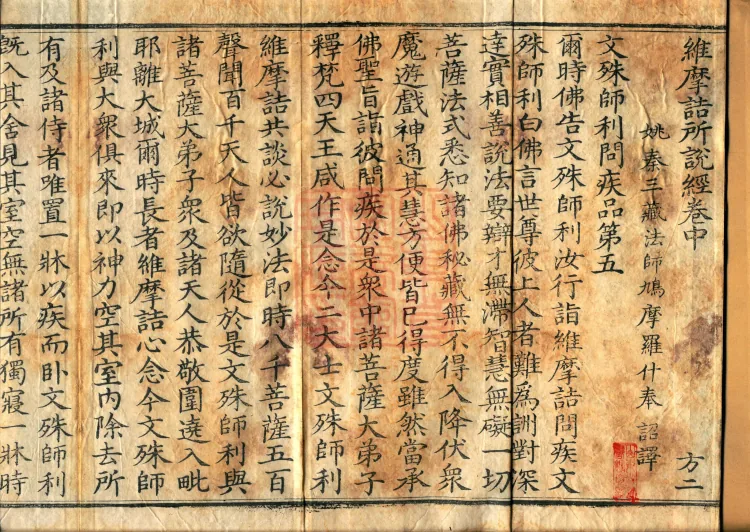 維摩詰所說經卷中
方二
姚秦三藏法師鳩摩羅什奉 詔譯
文殊師利問疾品第五
爾時佛告文殊師利汝行詣維摩詰問疾文
殊師利白佛言世尊彼上人者難爲詶對深
達實相善說法要辯才無滯智慧無礙一切
菩薩法式悉知諸佛秘藏無不得入降伏衆
魔遊戲神通其慧方便皆已得度雖然當承
佛聖旨詣彼問疾於是衆中諸菩薩大弟子
釋梵四天王咸作是念今二大士文殊師利
維摩詰共談必說妙法即時八千菩薩五百
聲聞百千天人皆欲隨從於是文殊師利與
諸菩薩大弟子衆及諸天人恭敬圍遶入毗
耶離大城爾時長者維摩詰心念今文殊師
利與大衆俱來即以神力空其室內除去所
有及諸侍者唯置一牀以疾而卧文殊師利
既入其舍見其室空無諸所有獨寢一牀時